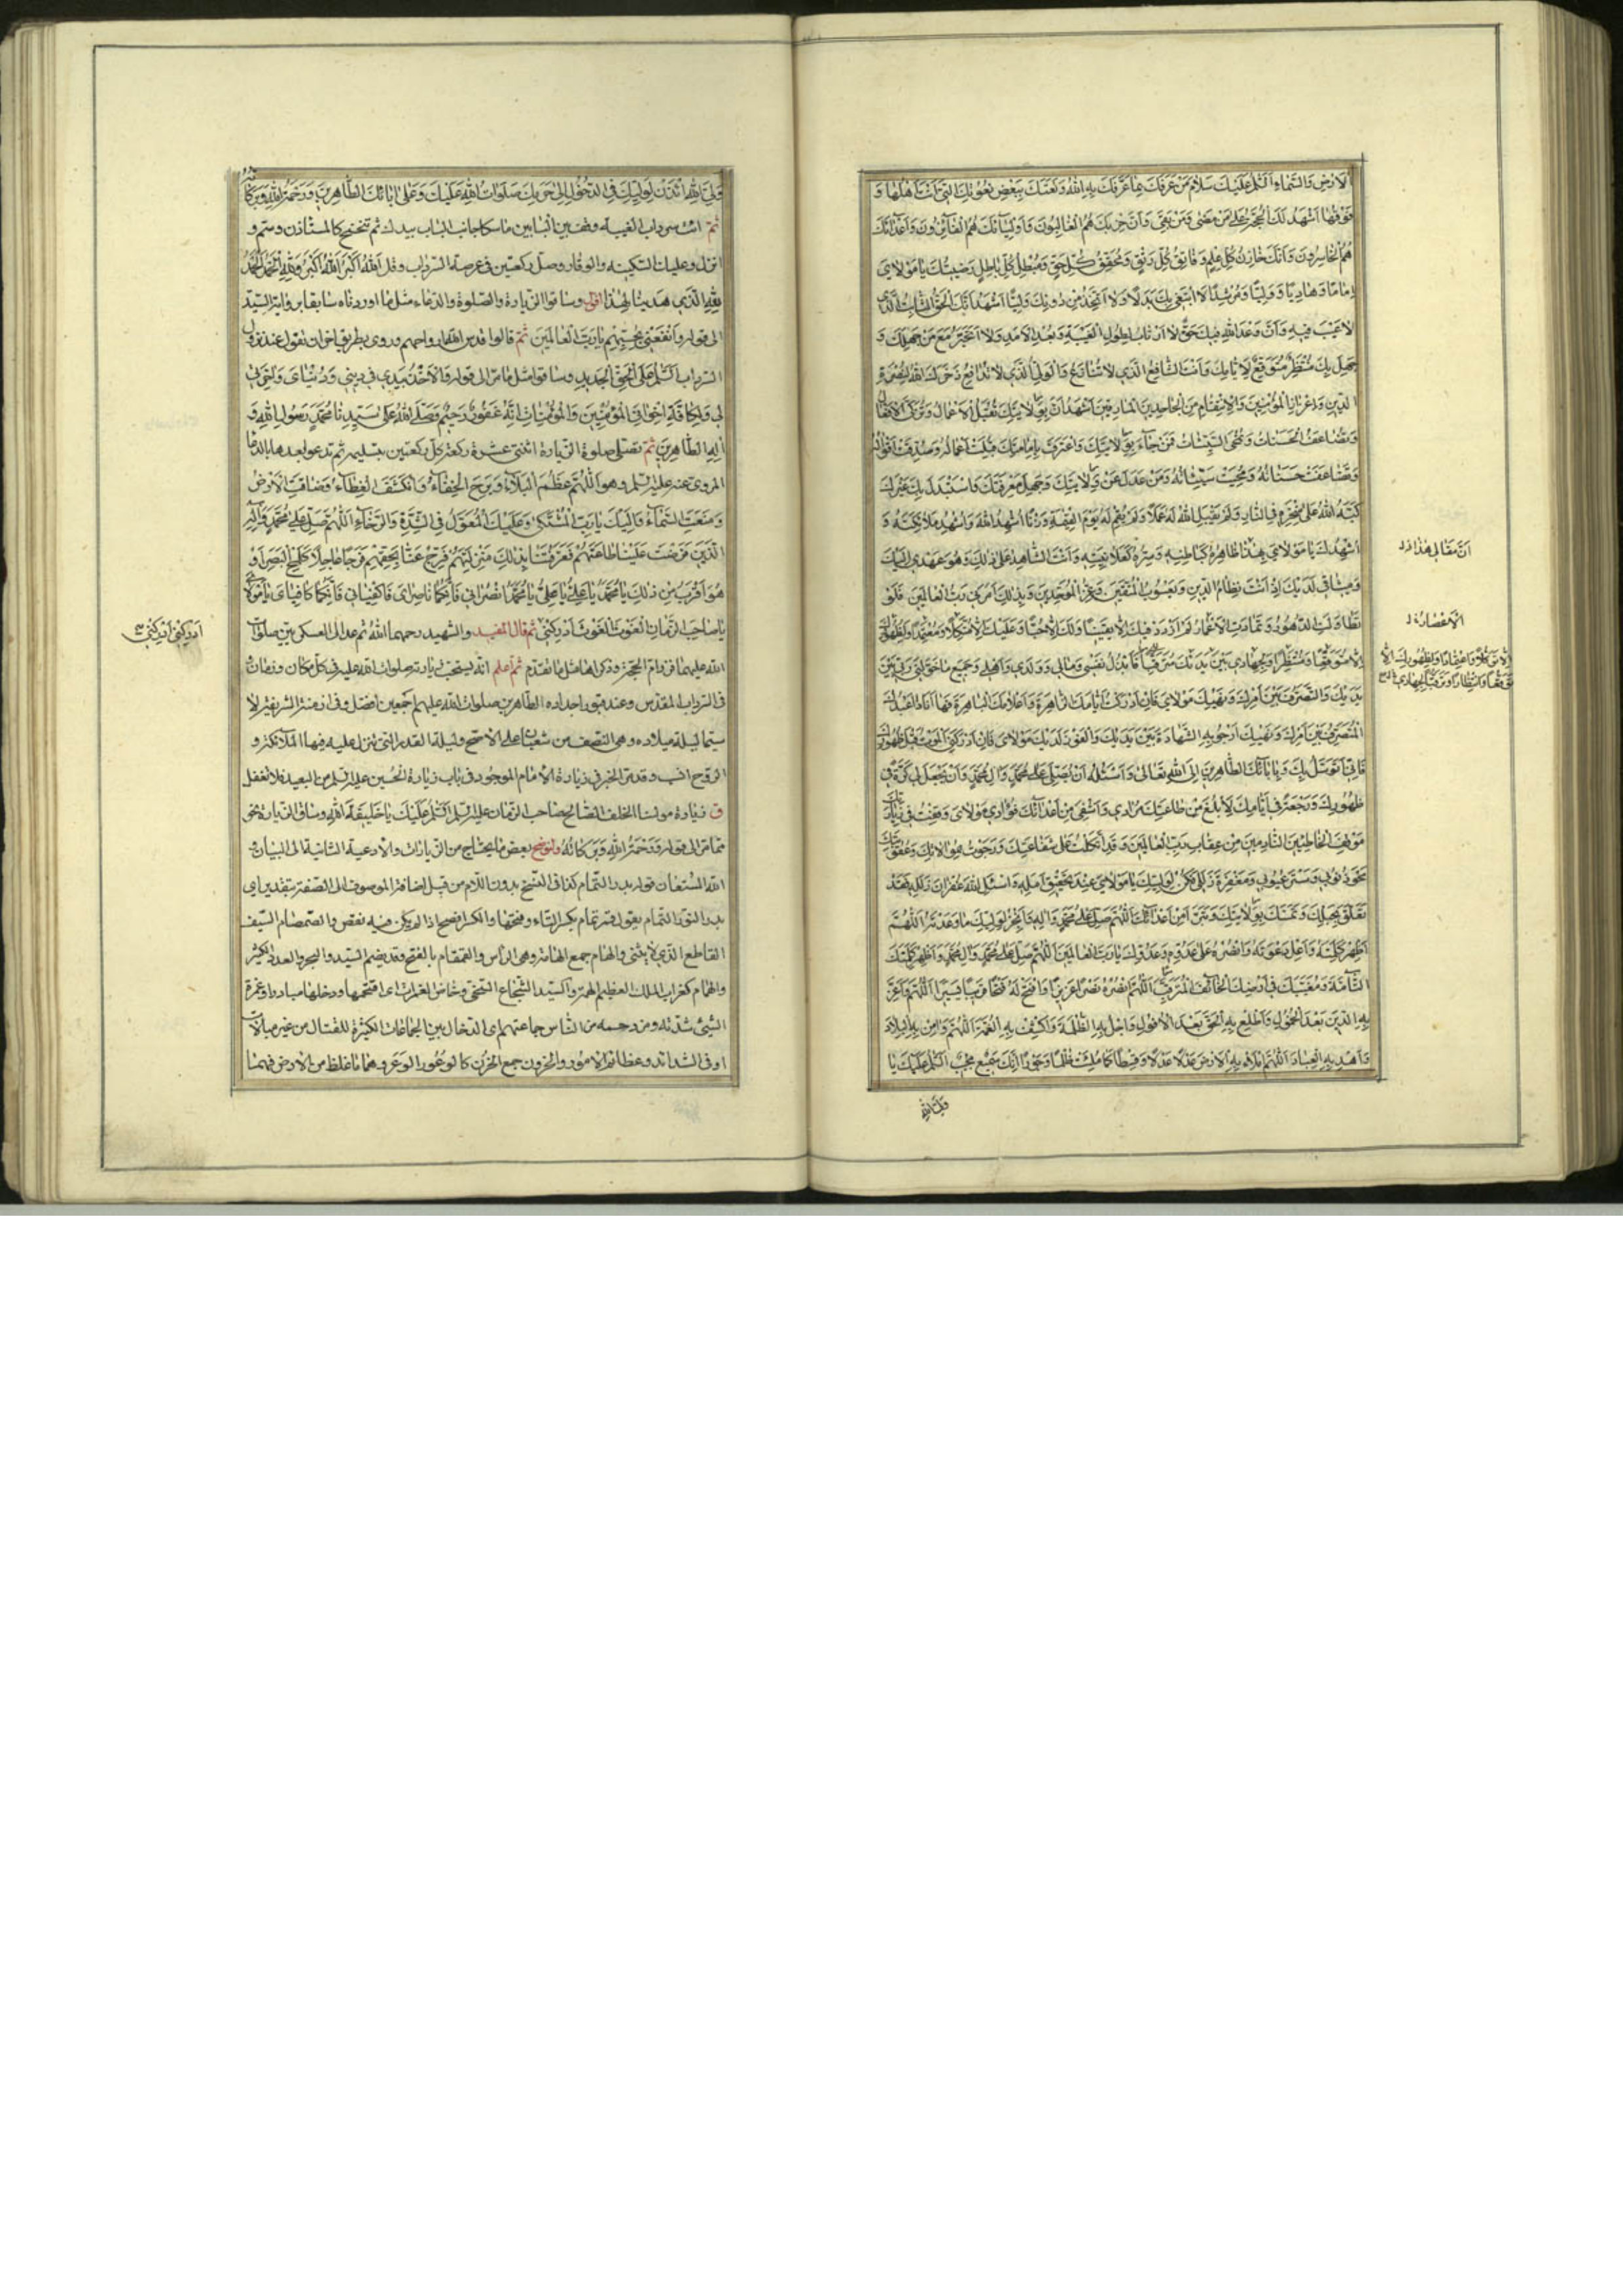 الارض والسماء السلم عليك سلام من عرفك بما عرفك به الله ونعتك ببعض نعوتك التى انت اهلها و
فوقها اشهد ان الحجة على من مضى ومن بقى وان حزبك هم الغالبون واوليائك هم الفائزون واعدائك
هم الخاسرون وانك خازن كل علم وفاتق كل رتق ومحقق كل حق ومبطل كل باطل رضيتك يا مولاى
اماما وهاديا ووليا ومرشدا لا ابتغى بك بدلا ولا اتخذ من دونك وليا اشهد انك الحق الثابت الذى
لا عيب فيه وان وعد الله فيك حق لا ارتاب لطول الغيبة وبعد الامد ولا اتحير مع من جهلك و
جهل بك منتظر متوقع لايامك وانت الشافع الذى لا تنازع والولى الذى لا تدافع ذخرك الله لنصرة
الدين واعزاز المؤمنين والانتقام من الجاحدين المارقين اشهد ان بولايتك تقبل الاعمال وتزكى الافعال
وتضاعف الحسنات وتمحى السيئات فمن جاء بولايتك واعترف بامامتك قبلت اعماله وصدقت اقواله
وتضاعفت حسناته ومحيت سيئاته ومن عدل عن ولايتك وجهل معرفتك واستبدل بك غيرك
كبه الله على منخره فى النار ولم يقبل الله له عملا ولم يقم له يوم القيمة وزنا اشهد الله واشهد ملائكته و
اشهدك يا مولاى بهذا ظاهره كباطنه وسره كعلانيته وانت الشاهد على ذلك وهو عهدى اليك
وميثاقى لديك اذ انت نظام الدين ويعسوب المتقين وعز الموحدين وبذلك امرنى رب العالمين فلو
تطاولت الدهور وتمادت الاعمار لم ازدد فيك الا يقينا ولك الا حبا وعليك الا متكلا ومعتمدا ولظهورك
الا متوقعا ومنتظرا ولجهادى بين يديك مترقبا فابذل نفسى ومالى وولدى واهلى وجميع ما خولنى ربى بين
يديك والتصرف بين امرك ونهيك مولاى فان ادركت ايامك الزاهرة واعلامك الباهرة فها انا ذا عبدك
المتصرف بين امرك ونهيك ارجو به الشهادة بين يديك والفوز لديك مولاى فان ادركنى الموت قبل ظهورك
فانى اتوسل بك وبابائك الطاهرين الى الله تعالى واسئله ان يصلى على محمد وال محمد وان يجعل لى كرة فى
ظهورك ورجعة فى ايامك لابلغ من طاعتك مرادى واشفى من اعدائك فؤادى مولاى وقفت فى زيارتك
موقف الخاطئين النادمين من عقاب رب العالمين وقد اتكلت على شفاعتك ورجوت بموالاتك وشفاعتك
محو ذنوبى وستر عيوبى ومغفرة زللى فكن لوليك يا مولاى عند تحقيق امله واسئل الله غفران زلله فقد
تعلق بحبلك وتمسك بولايتك وتبرء من اعدائك اللهم صل على محمد واله وانجز لوليك ما وعدته اللهم
اظهر كلمته واعل دعوته وانصره على عدوه وعدوك يا رب العالمين اللهم صل على محمد وال محمد واظهر كلمتك
التامة ومغيبك فى ارضك الخائف المترقب اللهم انصره نصرا عزيزا وافتح له فتحا قريبا يسيرا اللهم واعز
به الدين بعد الخمول واطلع به الحق بعد الافول واجل به الظلمة واكشف به الغمة اللهم وامن به البلاد
واهد به العباد اللهم املاء به الارض عدلا وقسطا كما ملئت ظلما وجورا انك سميع مجيب السلم عليك يا
ولى الله
ان مقالى هذا
ولى الله ائذن لوليك فى الدخول الى حرمك صلوات الله عليك وعلى ابائك الطاهرين ورحمة الله وبركاته
ثم ائت سرداب الغيبة وقف بين البابين ماسكا جانب الباب بيدك ثم تنحنح كالمستاذن وسم و
انزل وعليك السكينة والوقار وصل ركعتين فى عرصة السرداب وقل الله اكبر الله اكبر
لله الذى هدينا لهذا اقول وساقوا الزيارة والصلوة والدعاء مثل ما اوردناه سابقا برواية السيد
الى قوله وانفعنى بحبهم يا رب العالمين ثم قالوا قدس الله ارواحهم وروى بطريق اخر ان تقول عند نزول
السرداب السلم على الحق الجديد وساقوا مثل ما مر الى قوله والاخذ بيدى فى دينى ودنياى
لى ولكافة اخوانى المؤمنين والمؤمنات انه غفور رحيم وصلى الله على سيدنا محمد رسول الله و
اله الطاهرين ثم تصلى صلوة الزيارة اثنتى عشرة ركعة كل ركعتين بتسليمه ثم تدعو بعدها بالدعاء
المروى عنه عليه السلم وهو اللهم عظم البلاء وبرح الخفاء وانكشف الغطاء وضاقت الارض
ومنعت السماء واليك يا رب المشتكى وعليك المعول فى الشدة والرخاء اللهم صل على محمد واله
الذين فرضت علينا طاعتهم فعرفتنا بذلك منزلتهم فرج عنا بحقهم فرجا عاجلا كلمح البصر او
هو اقرب من ذلك يا محمد يا على يا على يا محمد انصرانى فانكما ناصراى واكفيانى فانكما كافياى يا مولاى
يا صاحب الزمان الغوث الغوث ادركنى ثم قال المفيد والشهيد رحمهما الله ثم عد الى العسكريين صلوات
الله عليهما فزر ام الحجة وذكراها مثل ما تقدم ثم اعلم انه يستحب زيارته صلوات الله عليه فى كل مكان وزمان
فى السرداب المقدس وعند قبور اجداده الطاهرين صلوات الله عليهم اجمعين افضل وفى ازمنة الشريفة لا
سيما ليلة ميلاده وهى النصف من شعبان على الاصح وليلة القدر التى تنزل عليه فيها الملائكة و
الروح انسب وقد مر الخبر فى زيارة الامام الموجود فى باب زيارة الحسين عليه السلم من البعيد فلا تغفل
ق زيارة مولينا الخلف الصالح صاحب الزمان عليه السلم السلم عليك يا خليفة الله وساق الزيارة نحو
مما مر الى قوله ورحمة الله وبركاته ولنوضح بعض ما يحتاج من الزيارات والادعية الثانية الى البيان و
الله المستعان قوله بدر التمام كذا فى النسخ بدون اللام من قبيل اضافة الموصوف الى الصفة بتقدير اى
بدر التمام يقول قمر تمام بكسر التاء وفتحها والكسر افصح اذا لم يكن فيه نقص والصمصام السيف
القاطع الذى لا ينثنى والهام جمع الهامة وهى الراس والقمقام بالفتح وقد يضم السيد والبحر والعدد الكثير
والهمام كغراب الملك العظيم الهمة والسيد الشجاع السخى وخاض الغمرات اى اقتحمها ودخلها مبادرا وغمرة
الشىء شدته ومزدحمه من الناس جماعتهم اى الدخال بين الجماعات الكثيرة للقتال من غير مبالاة
او فى الشدائد وعظائم الامور والحزون جمع الحزن كالوعور الوعر وهما ما غلظ من الارض
ادركنى ادركنى